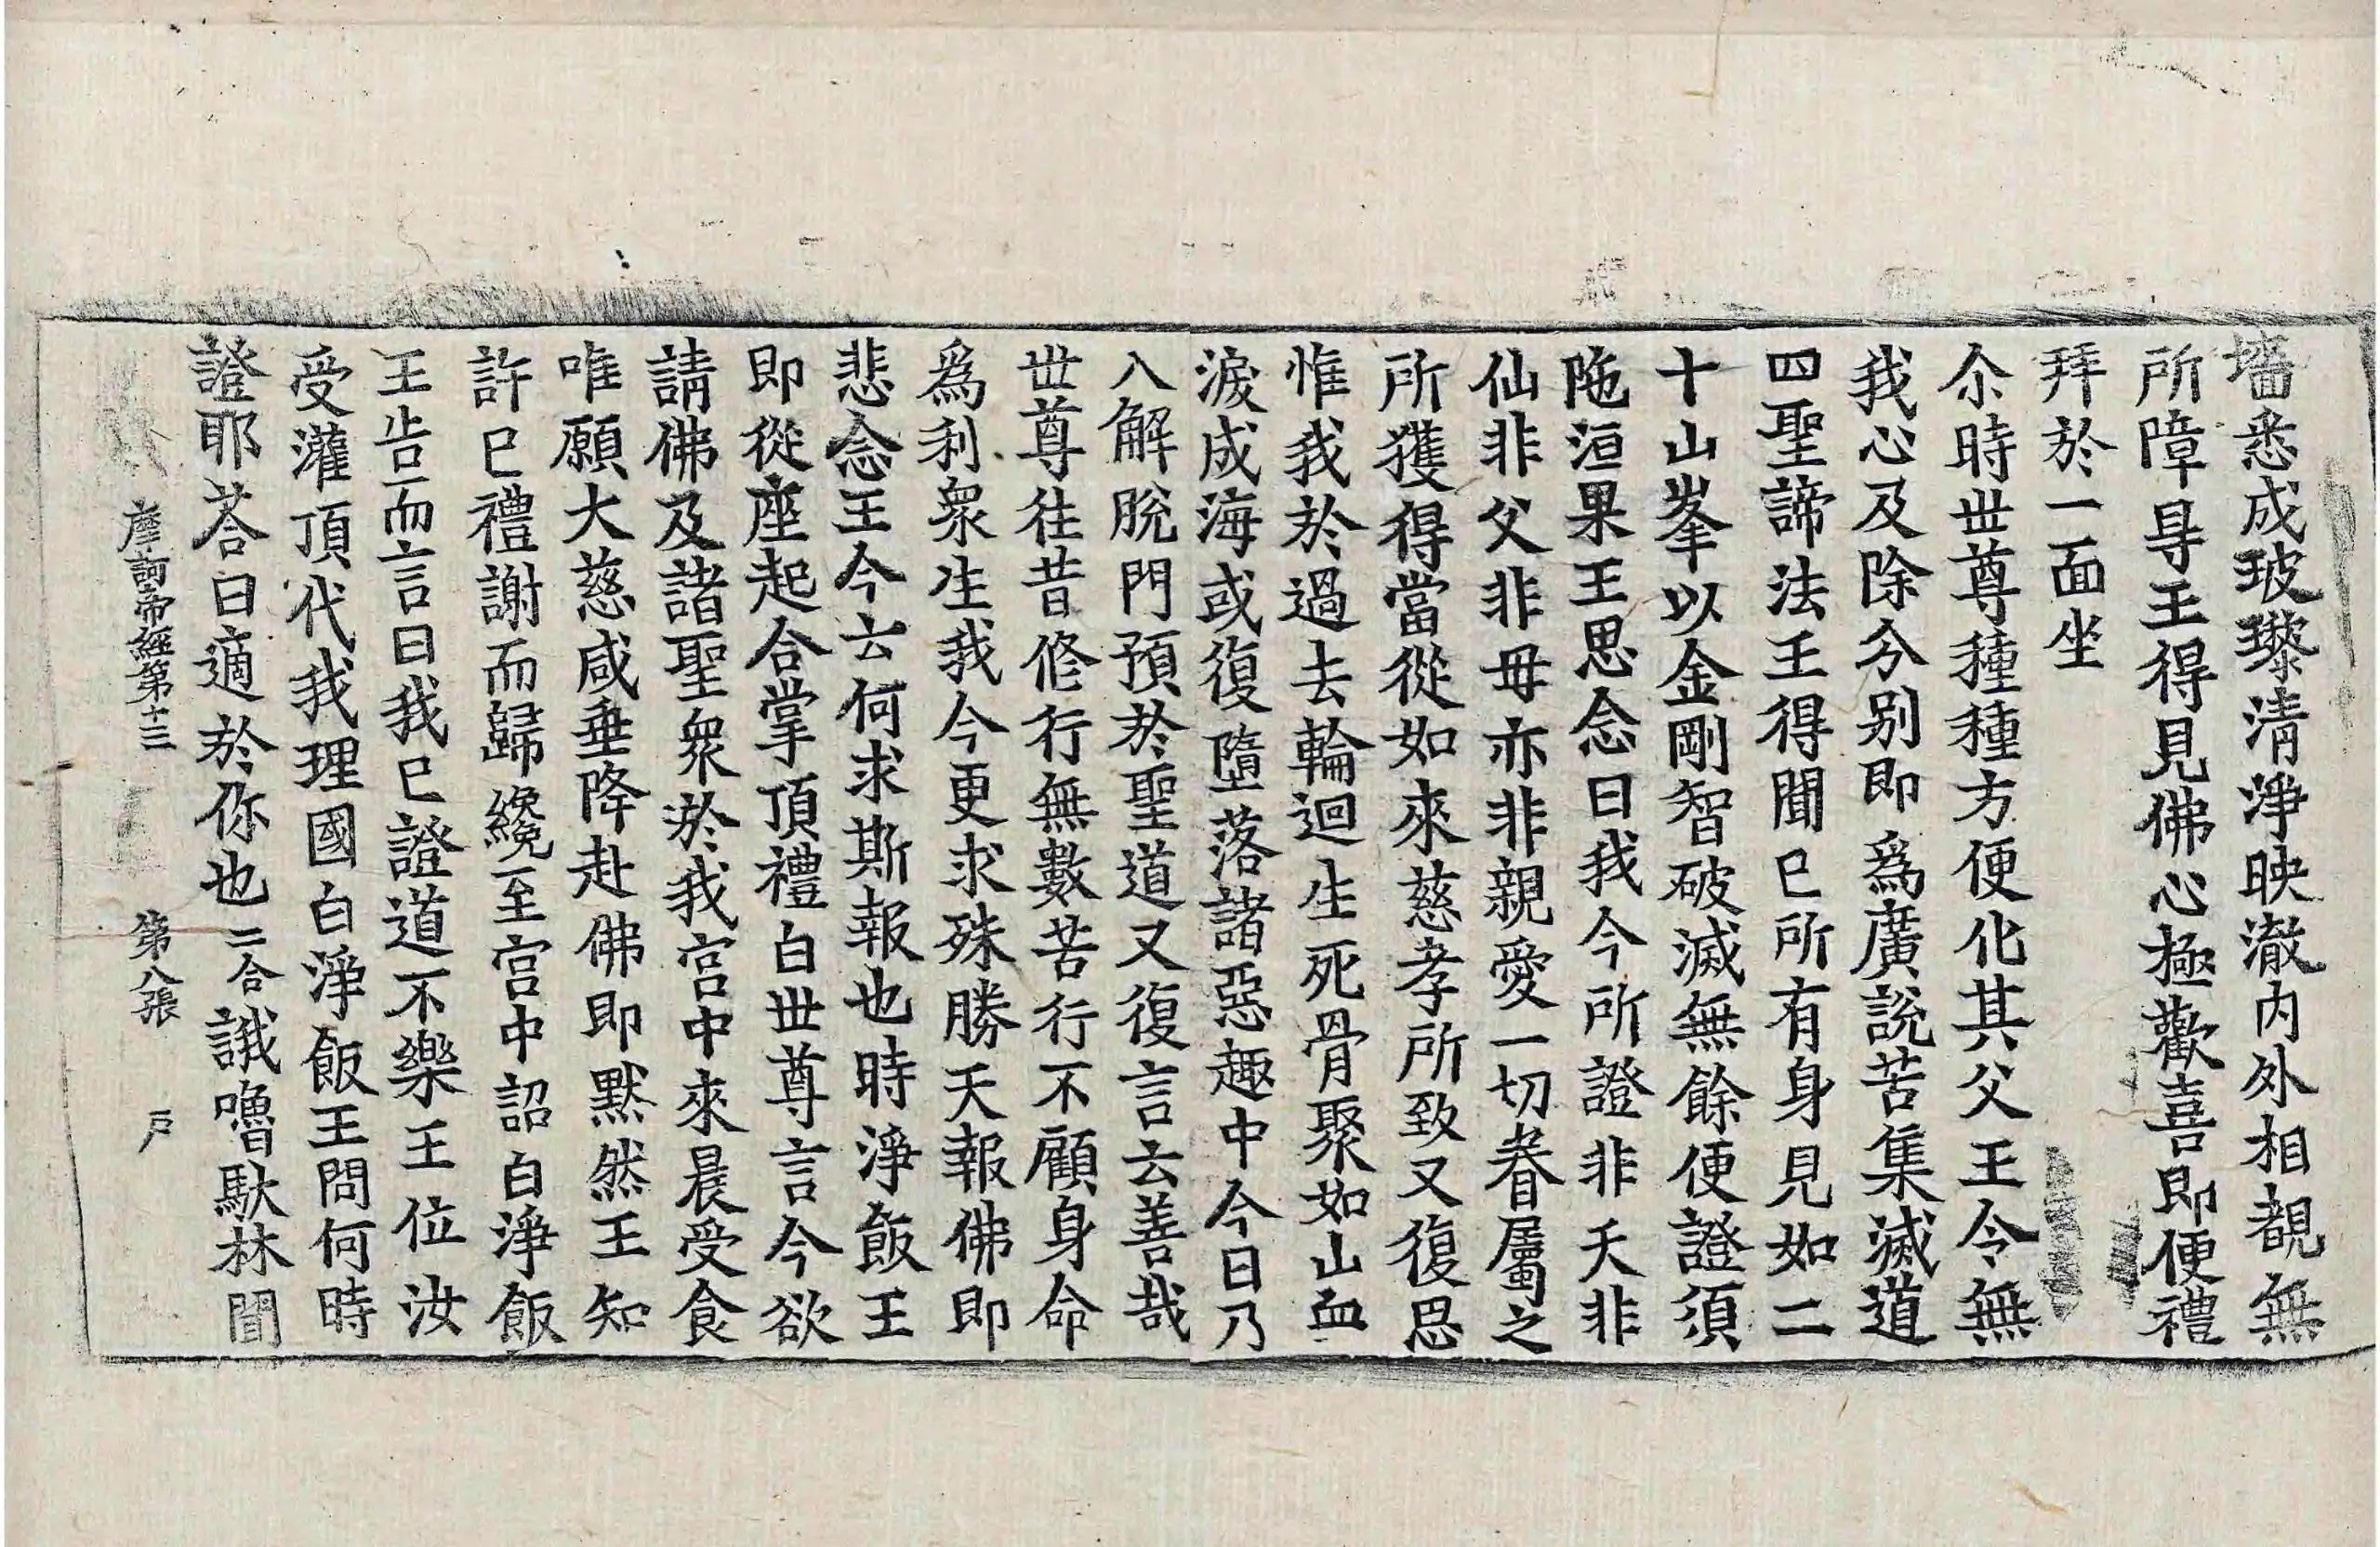 墻悉成玻瓈清淨映澈内外相覩無
所障㝵王得見佛心極歡喜即便禮
拜於一面坐
尒時世尊種種方便化其父王令無
我心及除分别即爲廣說苦集滅道
四聖諦法王得聞已所有身見如二
十山峯以金剛智破滅無餘便證須
陁洹果王思念曰我今所證非天非
仙非父非母亦非親愛一切眷屬之
所獲得當從如來慈孝所致又復思
惟我於過去輪迴生死骨聚如山血
淚成海或復墮落諸惡趣中今日乃
八解脫門預於聖道又復言云善哉
世尊往昔修行無數苦行不顧身命
爲利衆生我今更求殊勝天報佛即
悲念王今云何求斯報也時淨飯王
即從座起合掌頂禮白世尊言今欲
請佛及諸聖衆於我宫中來晨受食
唯願大慈咸垂降赴佛即默然王知
許已禮謝而歸纔至宫中詔白淨飯
王告而言曰我已證道不樂王位汝
受灌頂代我理國白淨飯王問何時
證耶荅曰適於你也二合誐嚕䭾林聞
摩訶帝經第十三 第八張 戶